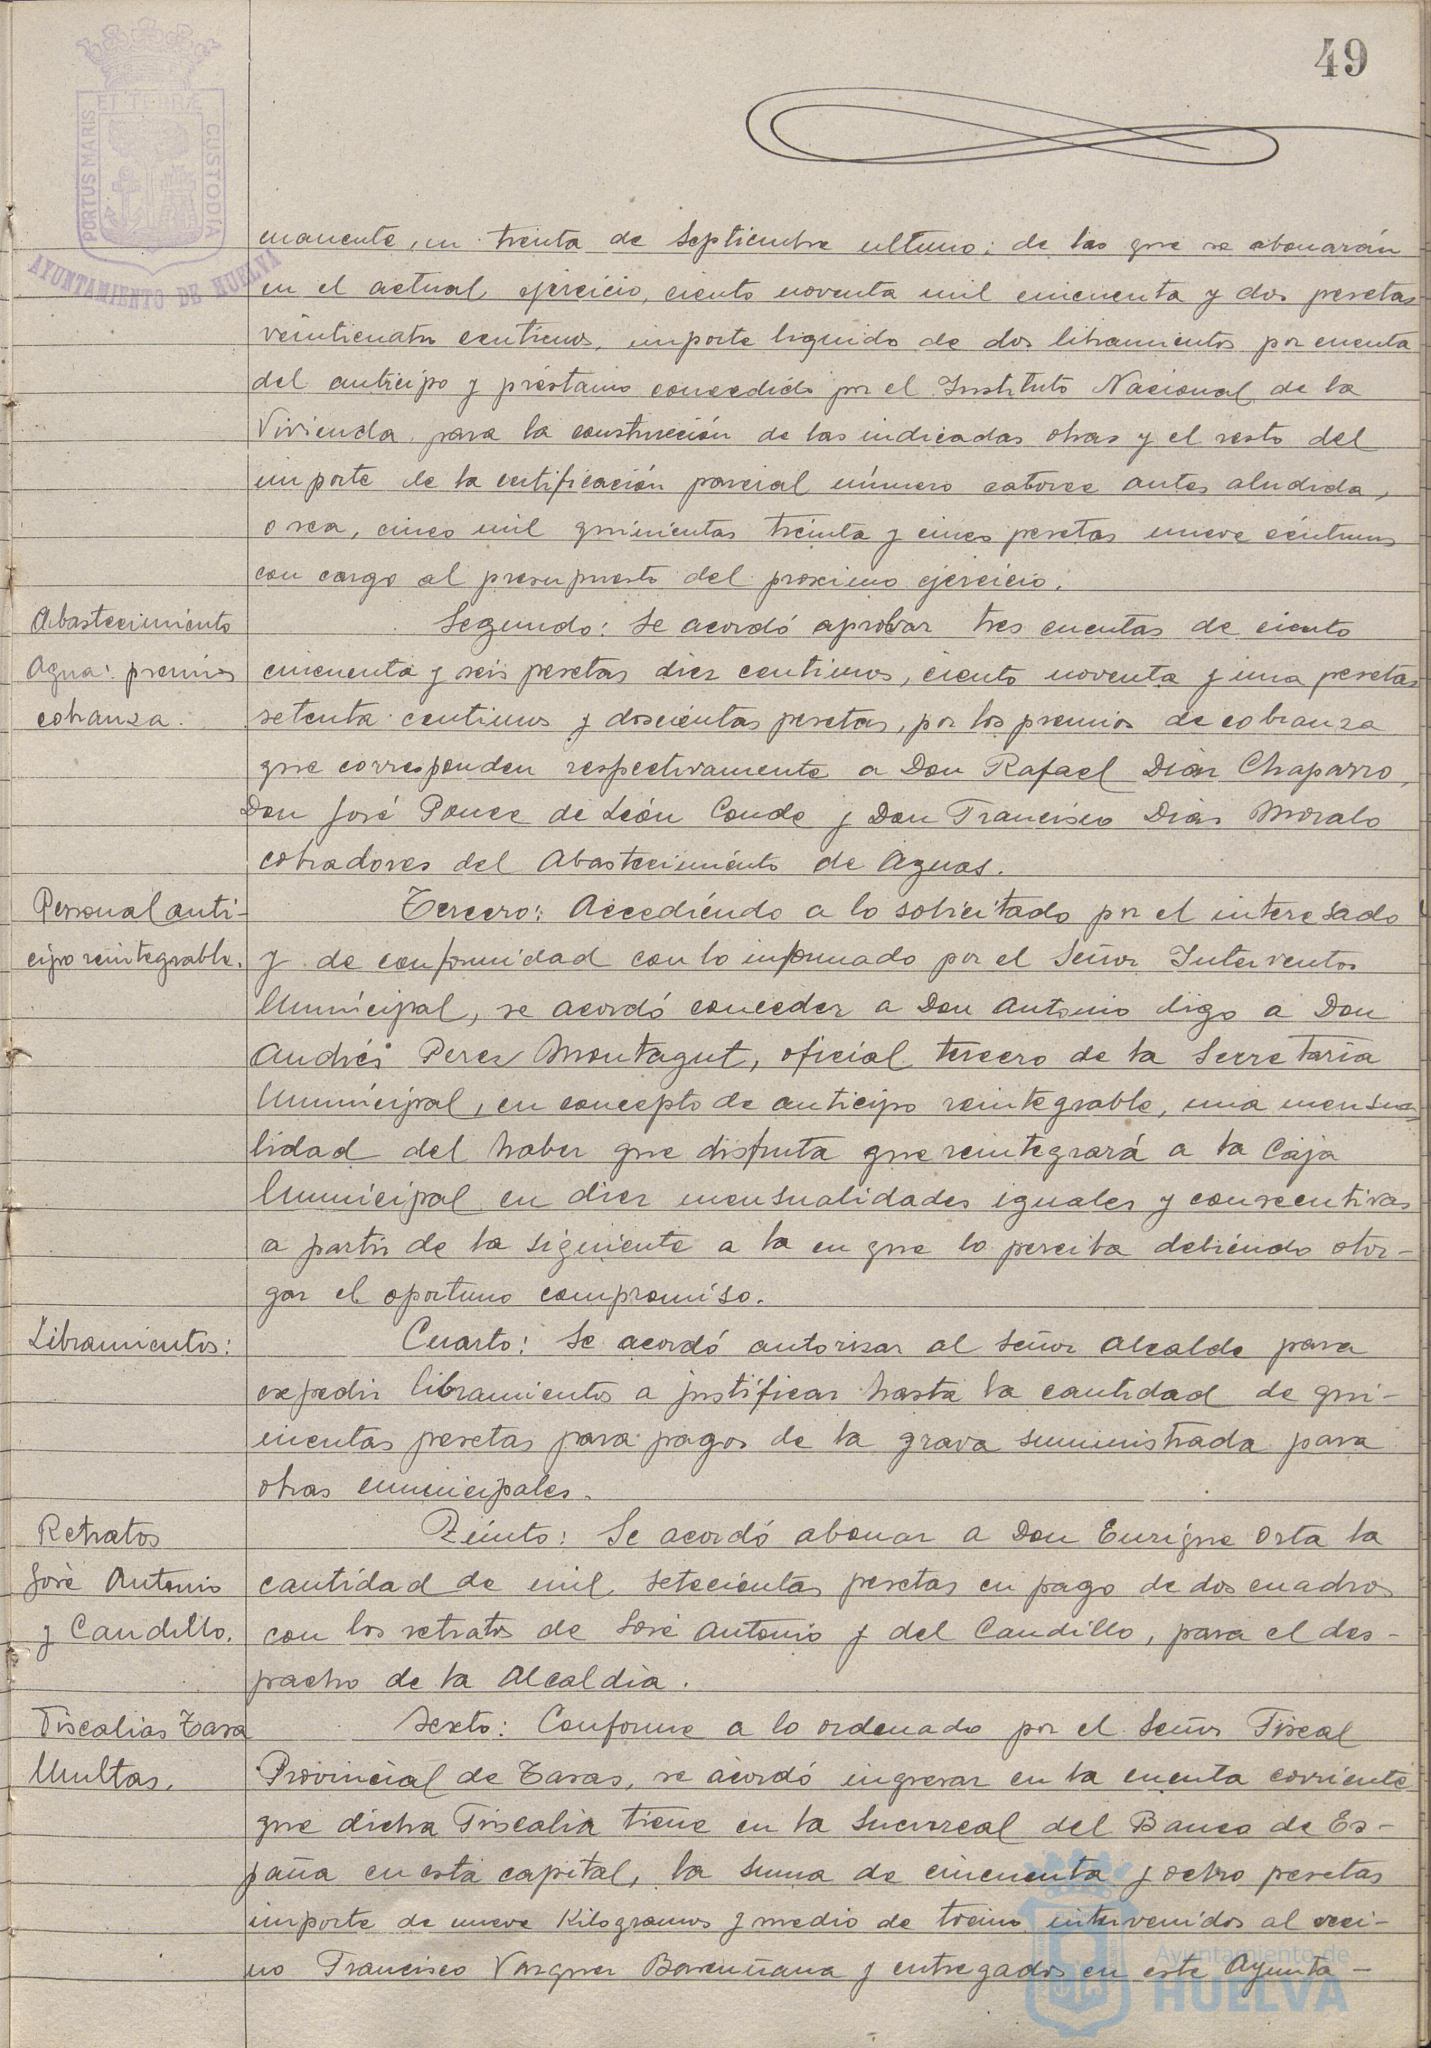 49
ET TERRÆ
PORTUS MARIS
CUSTODIA
AYUNTAMIENTO DE HUELVA
manente, en treinta de Septiembre ultimo: de las que se abonarán
en el actual ejercicio, ciento noventa mil cincuenta y dos pesetas
veinticuatro centimos, importe liquido de dos libramientos por cuenta
del anticipo y préstamo concedido por el Instituto Nacional de la
Vivienda para la construcción de las indicadas obras y el resto del
importe de la certificación parcial número catorce antes aludida,
o sea, cinco mil quinientas treinta y cinco pesetas nueve céntimos
con cargo al presupuesto del proximo ejercicio.
Abastecimiento
Agua: premios
cobranza.
Segundo: Se acordó aprobar tres cuentas de ciento
cincuenta y seis pesetas diez centimos, ciento noventa y una pesetas
setenta centimos y doscientas pesetas, por los premios de cobranza
que corresponden respectivamente a Don Rafael Diaz Chaparro,
Don José Ponce de León Conde y Don Francisco Dias Morale
cobradores del Abastecimiento de Aguas.
Personal anti-
cipo reintegrable.
Tercero: Accediendo a lo solicitado por el interesado
y de conformidad con lo informado por el Señor Interventor
Municipal, se acordó conceder a Don Antonio digo a Don
Andrés Perez Montagut, oficial tercero de la Secretaria
Municipal, en concepto de anticipo reintegrable, una mensua
lidad del haber que disfruta que reintegrará a la Caja
Municipal en diez mensualidades iguales y consecutivas
a partir de la siguiente a la en que lo perciba debiendo otor-
gar el oportuno compromiso.
Libramientos:
Cuarto: Se acordó autorizar al Señor Alcalde para
expedir libramientos a justificar hasta la cantidad de qui-
nientas pesetas para pagos de la grava suministrada para
obras municipales.
Retratos
José Antonio
y Caudillo.
Quinto: Se acordó abonar a Don Enrique Orta la
cantidad de mil setecientas pesetas en pago de dos cuadros
con los retratos de José Antonio y del Caudillo, para el des-
pacho de la Alcaldia.
Fiscalias Tasa
Multas.
Sexto: Conforme a lo ordenado por el Señor Fiscal
Provincial de Tasas, se acordó ingresar en la cuenta corriente
que dicha Fiscalia tiene en la Sucursal del Banco de Es-
paña en esta capital, la suma de cincuenta y ocho pesetas
importe de nueve Kilogramos y medio de tocino intervenidos al veci-
no Francisco Vazquez y entregados en este Ayunta-
Ayuntamiento de
HUELVA